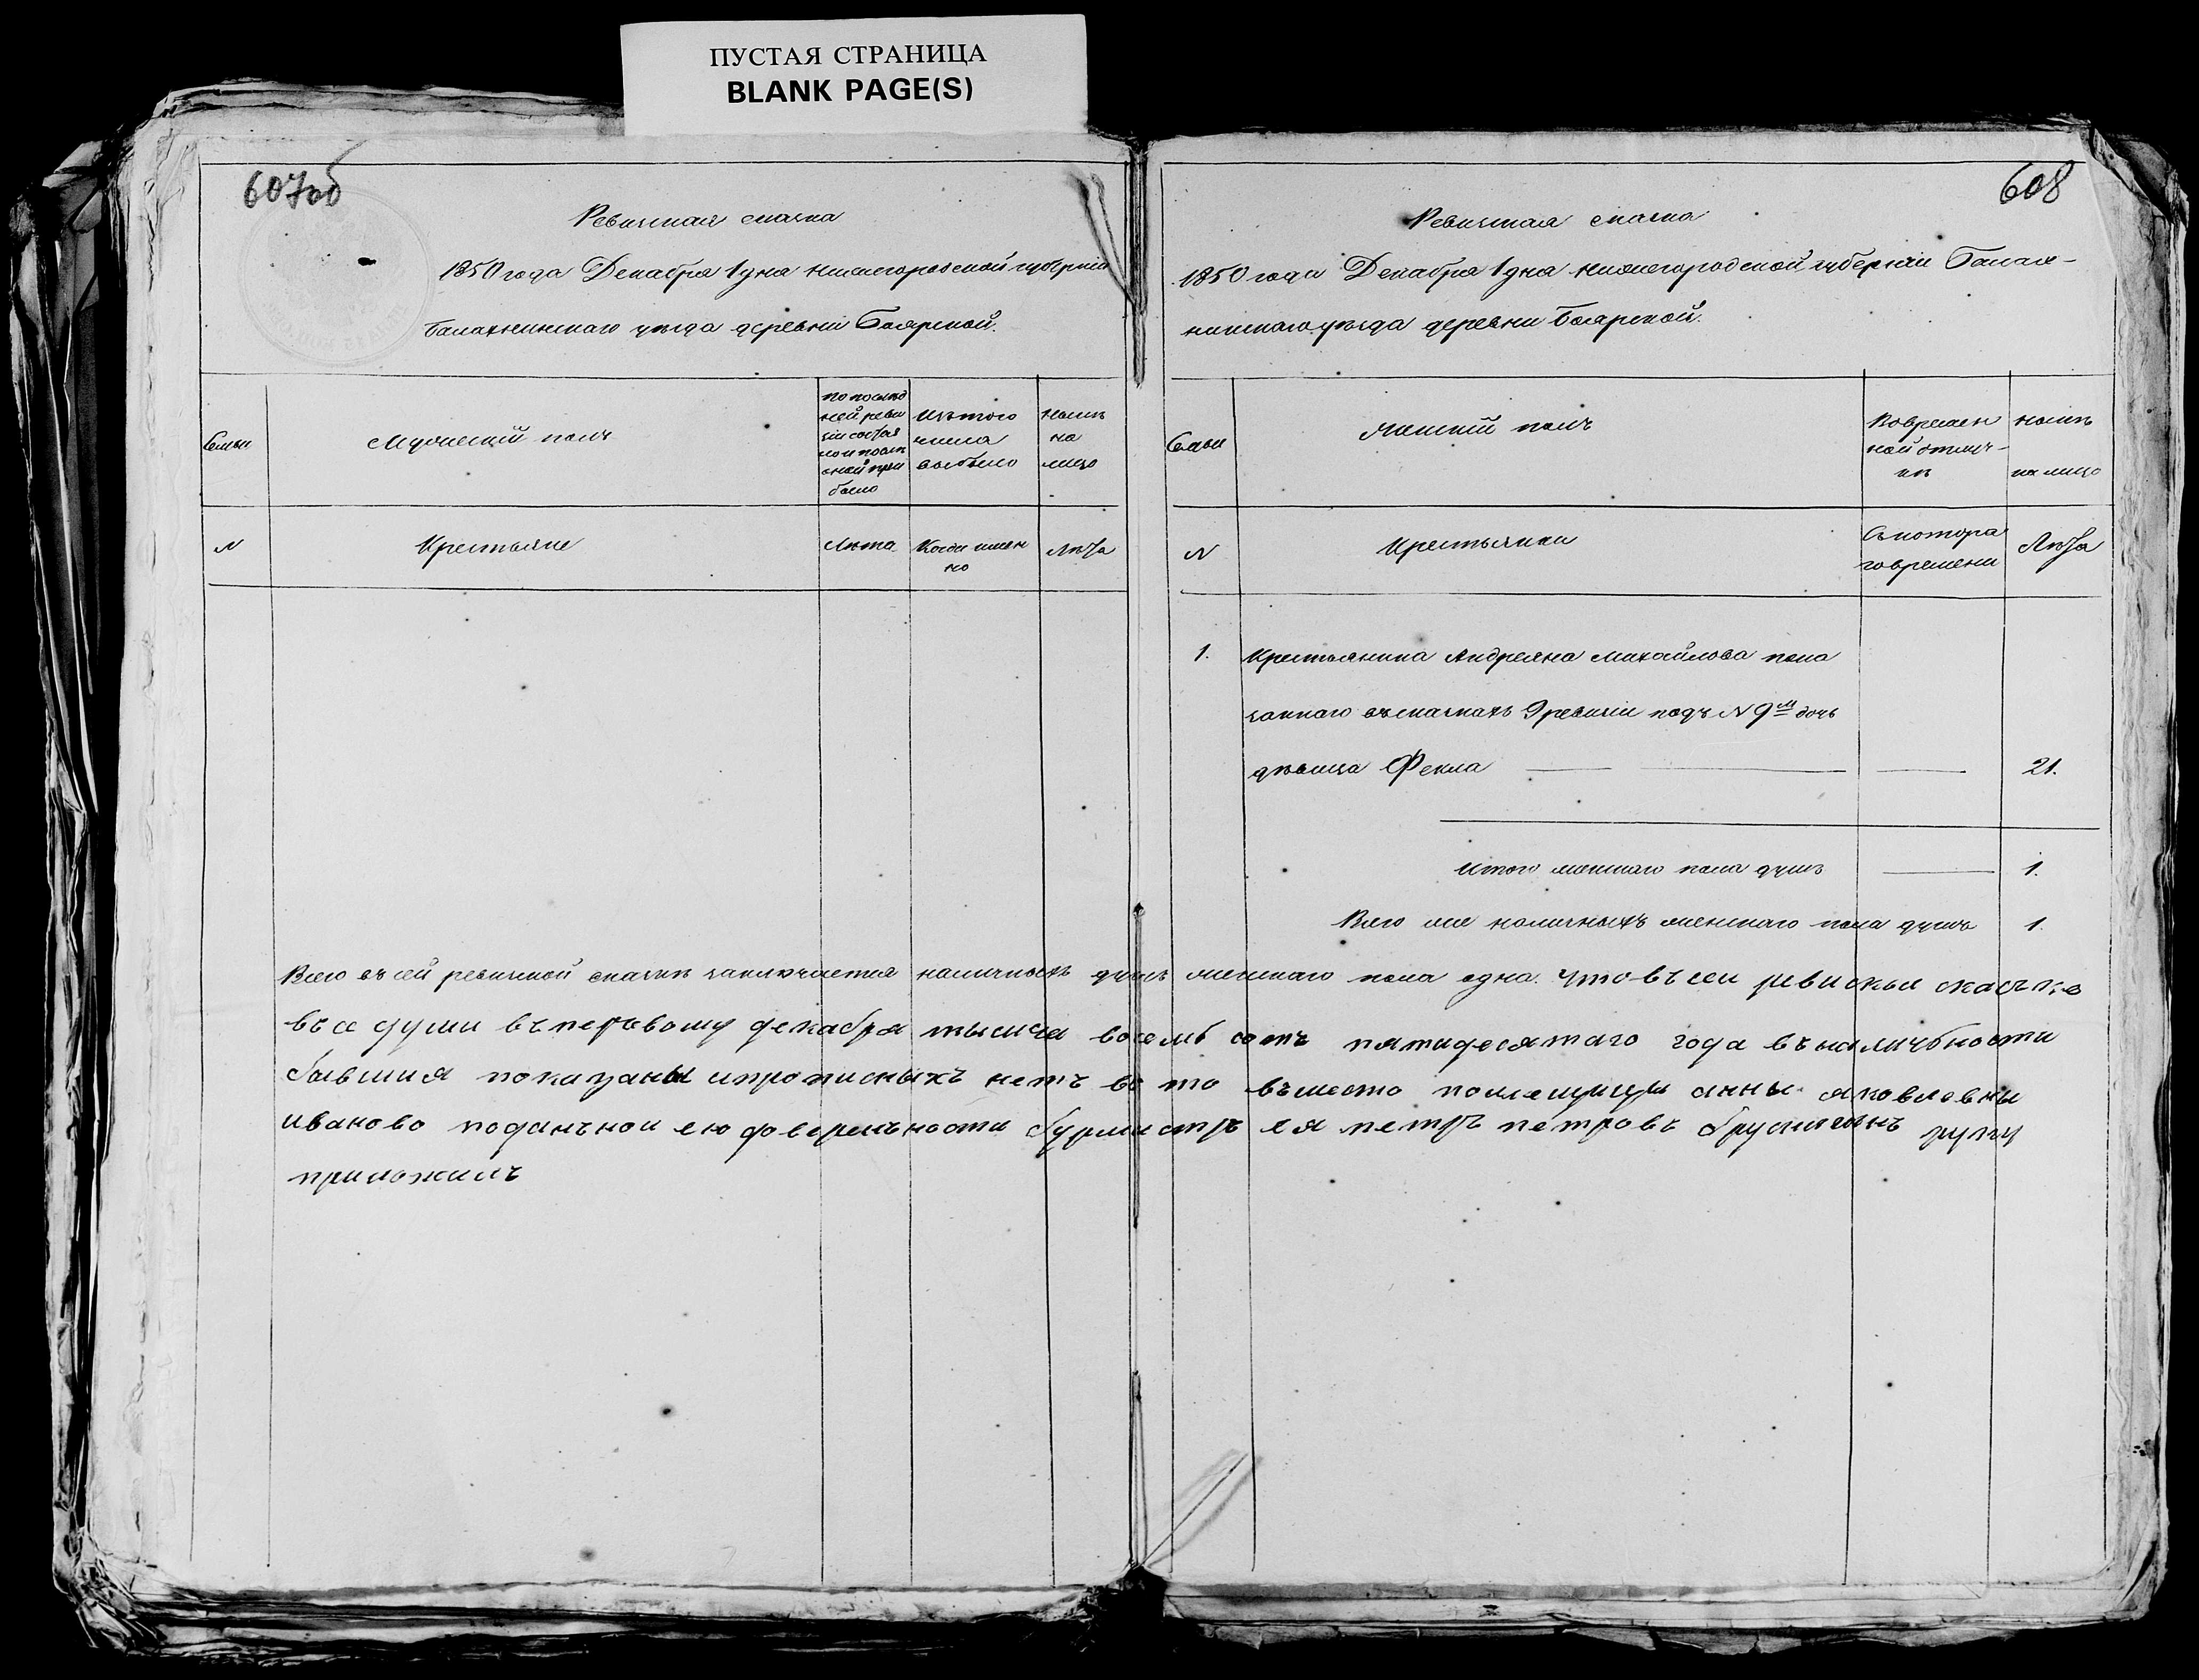 ПУСТАЯ СТРАНИЦА
BLANK PAGE(S)
607об
Ревизская сказка
1850 года Декабря 1 дня нижегородской губерніи
Балахнинскаго уѣзда деревни Боярской.
Семьи
Мужескій полъ
По послѣд
ней реви
зіи состоя
ло и послѣ
оной при
было
Изъ того
числа
выбыло
Нынѣ
на
лицо
N
Крестьяне
Лѣта
Когда имен
но
Лѣта
608
Ревизская сказка
1850 года Декабря 1 дня нижегородской губерніи Балах-
нинскаго уѣзда деревни Боярской.
Семьи
Женскій полъ
Во времен
ной отлуч-
кѣ
Нынѣ
на лицо
N
Крестьянки
Съ котора
го времени
Лѣта
1. Крестьянина Андреяна Михайлова пока
заннаго въ сказкахъ 9 ревизіи подъ N 9м дочь
дѣвица Фекла 21.
Итого женскаго пола душъ 1.
Всего же наличныхъ женскаго пола душъ 1.
Всего въ сей ревизской сказкѣ заключается наличныхъ душъ женскаго пола одна. что въ сеи ревискои скаске
въсе души въ перъвому декабря тысяча восемь сотъ пятидесятаго года въ наличьности
бывшия показаны и прописныхъ нетъ въ то въместо помещицы анны яковлевны
иваново поданъной ею доверенъности бурмистръ ея петръ петровъ руку
приложилъ